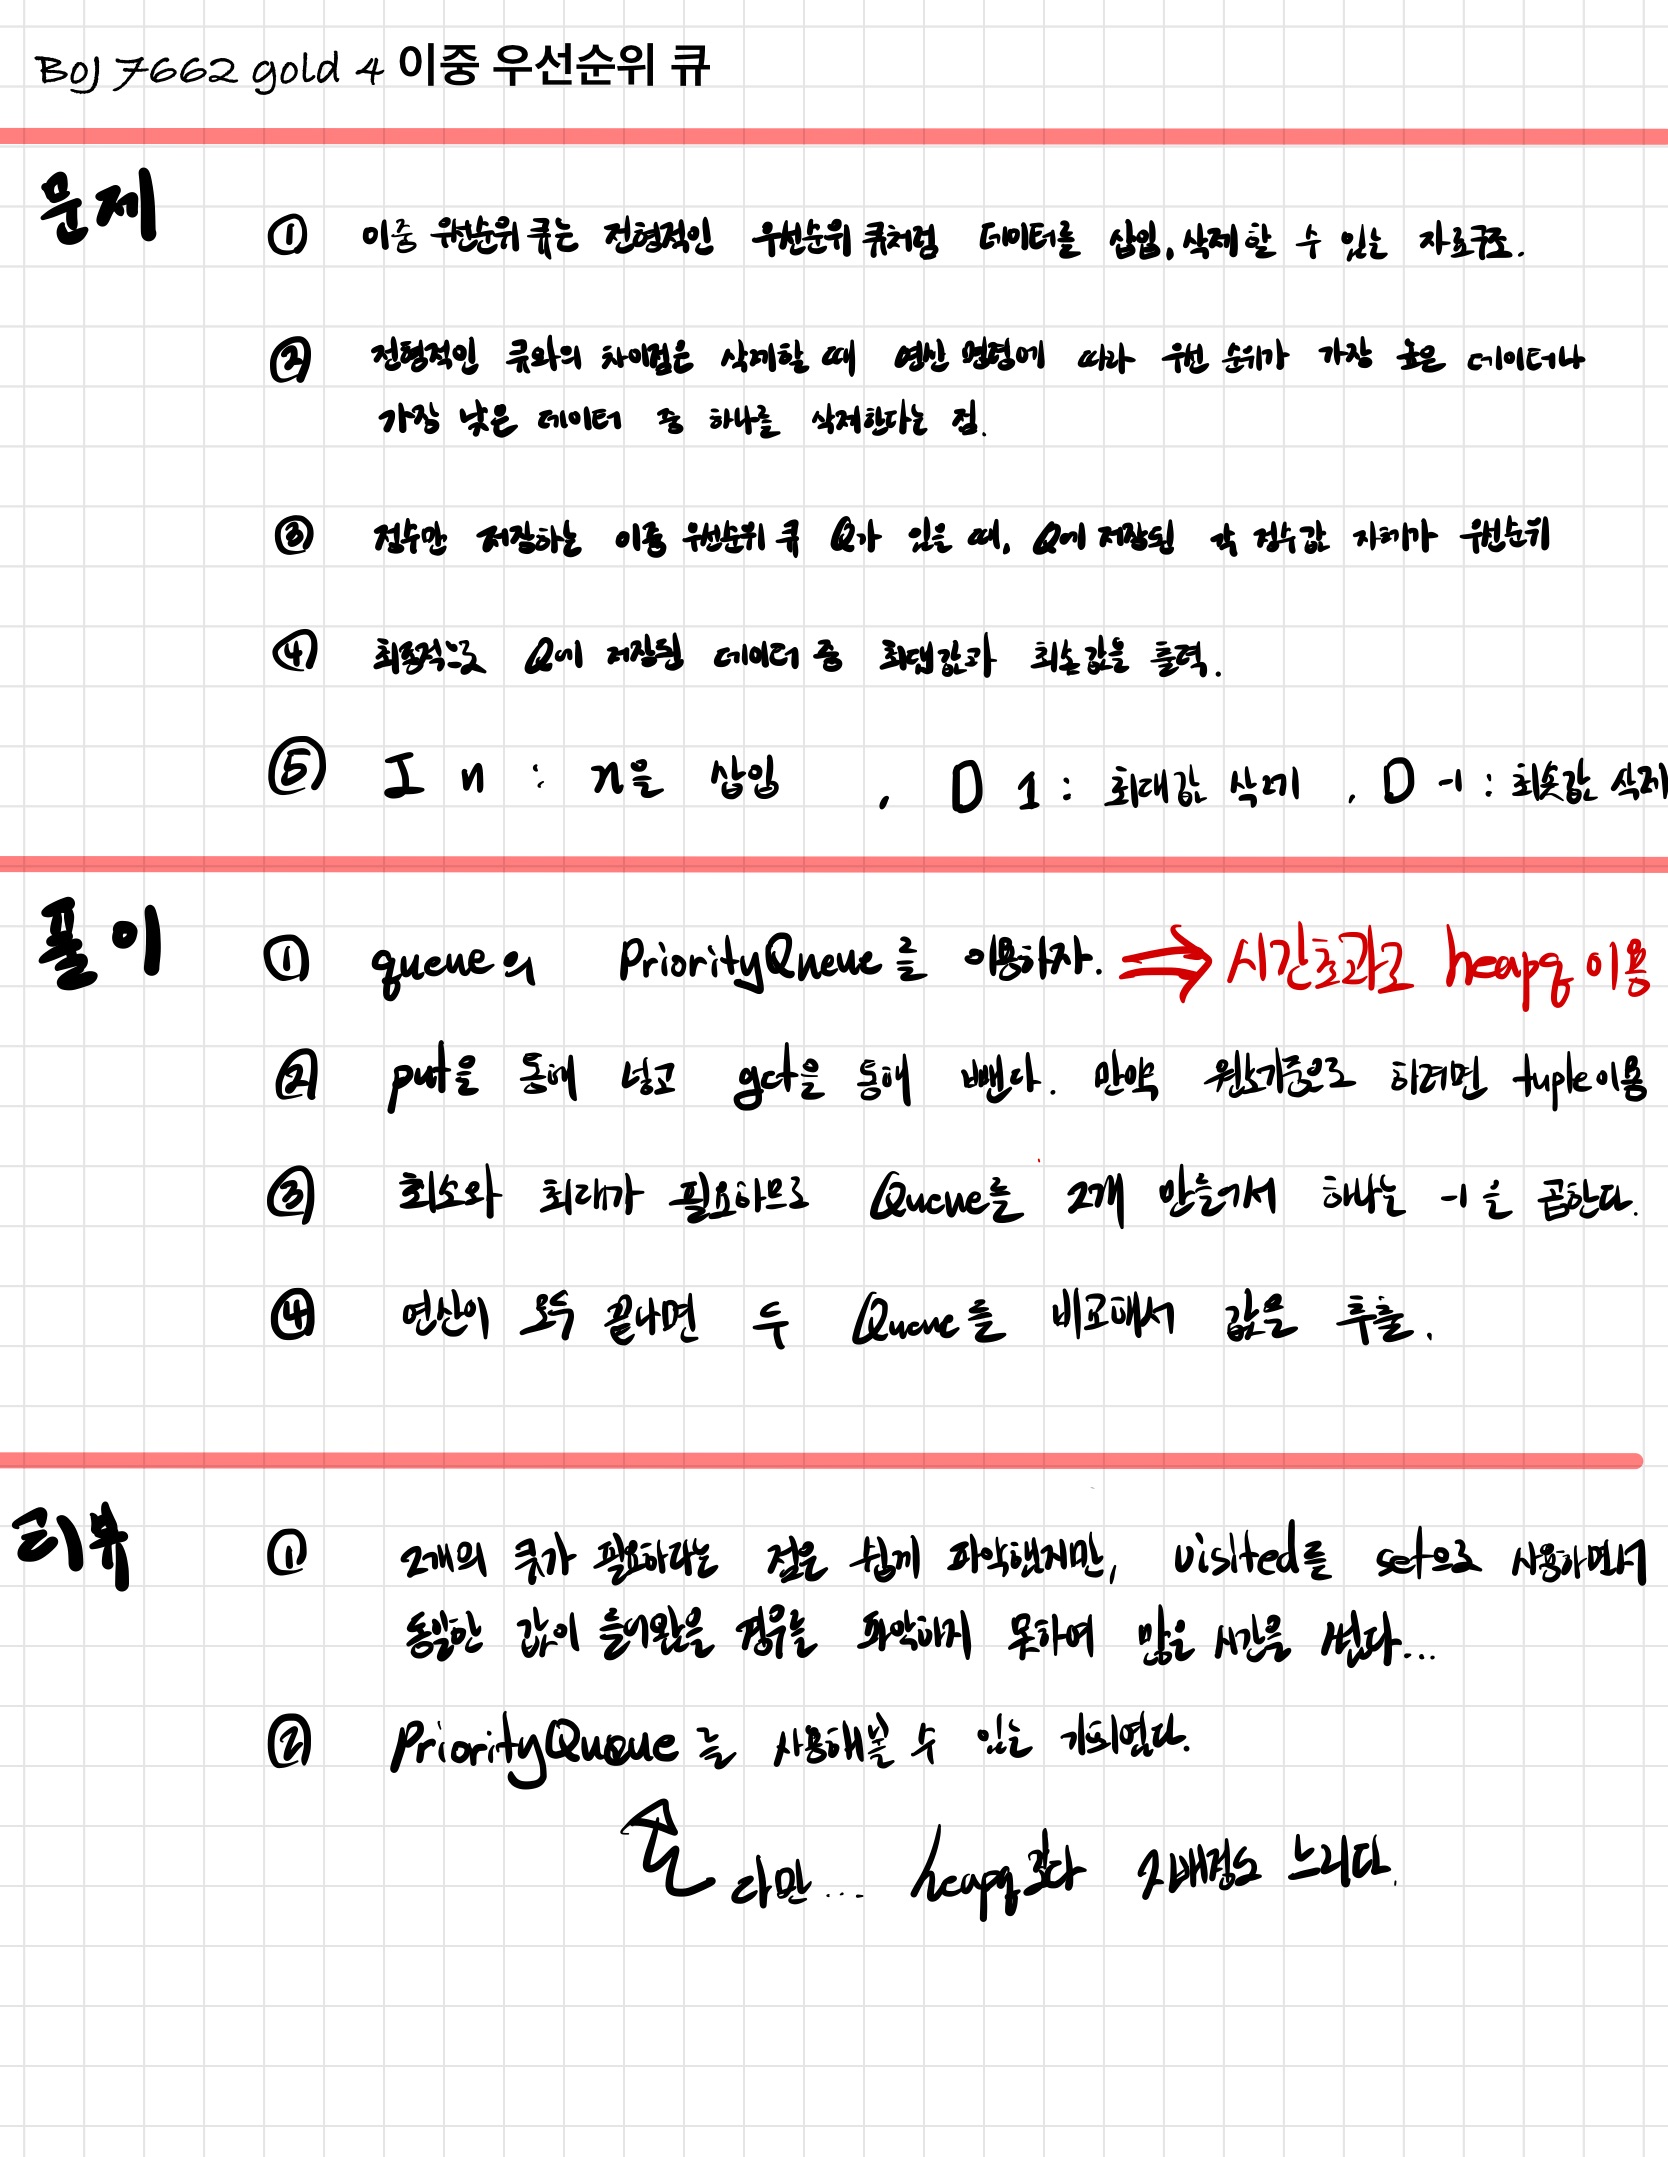 BOJ 7662 gold 4 이중 우선순위 큐
문제
① 이중 우선순위 큐는 전형적인 우선순위 큐처럼 데이터를 삽입, 삭제할 수 있는 자료구조.
② 전형적인 큐와의 차이점은 삭제할 때 연산 명령에 따라 우선 순위가 가장 높은 데이터나
가장 낮은 데이터 중 하나를 삭제한다는 점.
③ 정수만 저장하는 이중 우선순위 큐 Q가 있을 때, Q에 저장된 각 정수값 자체가 우선순위
④ 최종적으로 Q에 저장된 데이터 중 최댓값과 최솟값을 출력.
⑤ I n : n을 삽입 , D 1 : 최대값 삭제 , D -1 : 최솟값 삭제
풀이
① queue의 PriorityQueue를 이용하자. ⇒ 시간초과로 heapq 이용
② put을 통해 넣고 get을 통해 뺀다. 만약 원소기준으로 하려면 tuple이용
③ 최소와 최대가 필요하므로 Queue를 2개 만들어서 하나는 -1을 곱한다.
④ 연산이 모두 끝나면 두 Queue를 비교해서 값을 추출.
리뷰
① 2개의 큐가 필요하다는 점은 쉽게 파악했지만, visited를 set으로 사용하면서
동일한 값이 들어왔을 경우를 파악하지 못하여 많은 시간을 썼다...
② PriorityQueue를 사용해볼 수 있는 기회였다.
다만... heapq보다 2배정도 느리다.